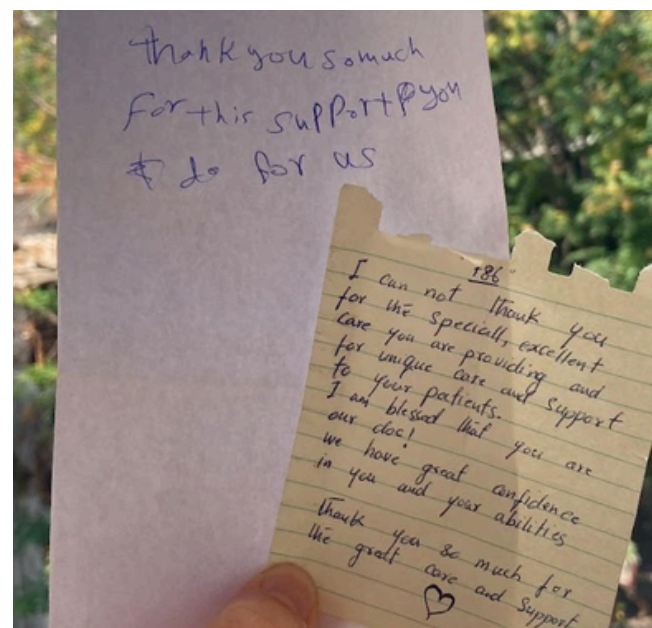 Thank you so much
for this support you
do for us
786
I can not thank you
for the speciall, excellent
care you are providing and
for unique care and support
to your patients.
I am blessed that you are
our doc!
we have great confidence
in you and your abilities
Thank you so much for
the great care and support